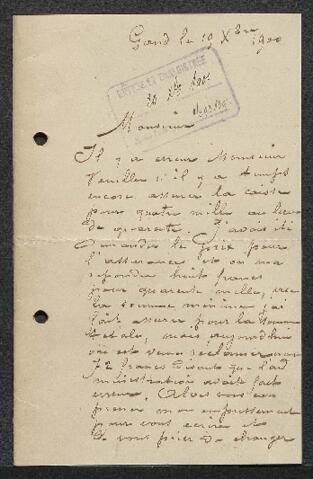 Gand le 19 Xbre 1900
Monsieur
Il y a erreur Monsieur
Veuillez s'il y a temps
encore assurer la caisse
pour quatre mille au lieu
de quarante. J'avais été
demander le prix pour
l'assurance et on m'a
répondu huit francs
pour quarante mille, vu
la somme minime j'ai
fait assurer pour la somme
totale, mais aujourd'hui
on est venu réclamer
72 francs disant que l'ad
ministration avait fait
erreur. Alors vous
prouver mon empressement
pour vous écrire et
de vous prier de changer